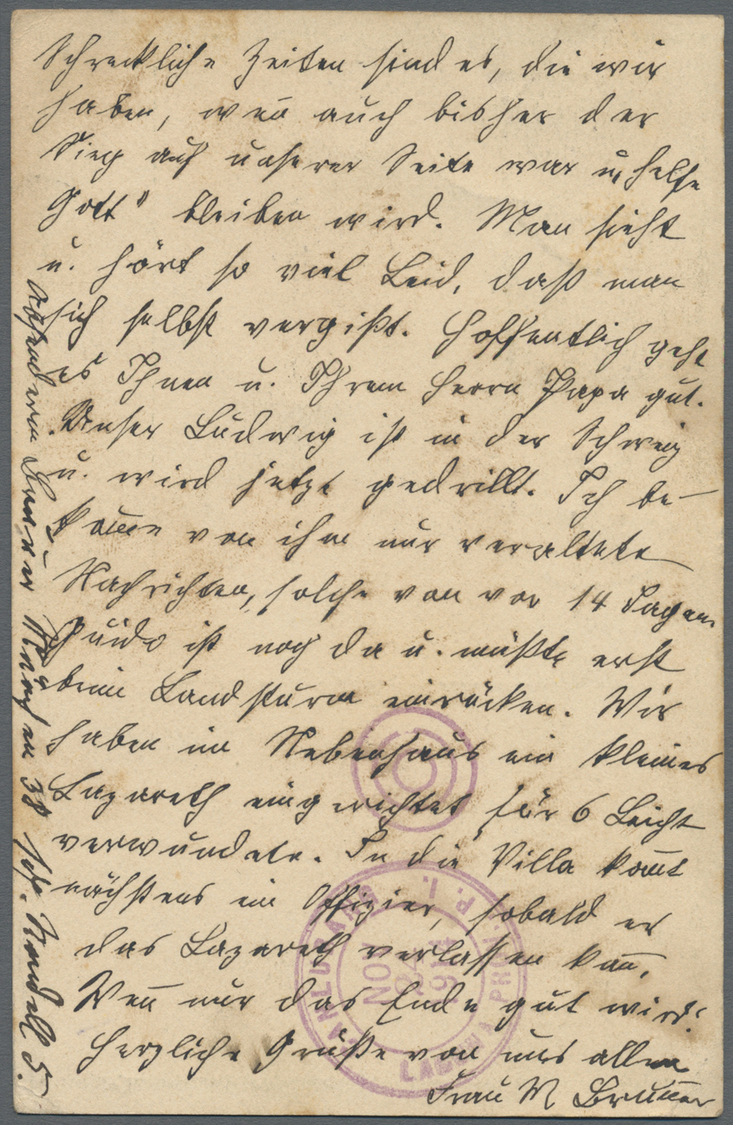 Schreckliche Zeiten sind es, die wir
haben, weñ auch bisher der
Sieg auf unserer Seite war u. „helfe
Gott" bleiben wird. Man sieht
u. hört so viel Leid, daß man
sich selbst vergißt. Hoffentlich geht
es Ihnen u. Ihrem Herrn Papa gut.
Unser Ludwig ist in der Schweiz
u. wird jetzt gedrillt. Ich be-
kom̄e von ihm nur veraltete
Nachrichten, solche von vor 14 Tagen.
Guido ist noch da u. müßte erst
beim Landsturm einrücken. Wir
haben im Nebenhaus ein kleines
Lazareth eingerichtet für 6 Leicht
verwundete. In die Villa kom̄t
nächstens ein Offizier, sobald er
das Lazareth verlassen kañ.
Weñ nur das Ende gut wird!
Herzliche Grüße von uns allen
Frau M Bruñer
Absenderin München 38
NOV
P. I.